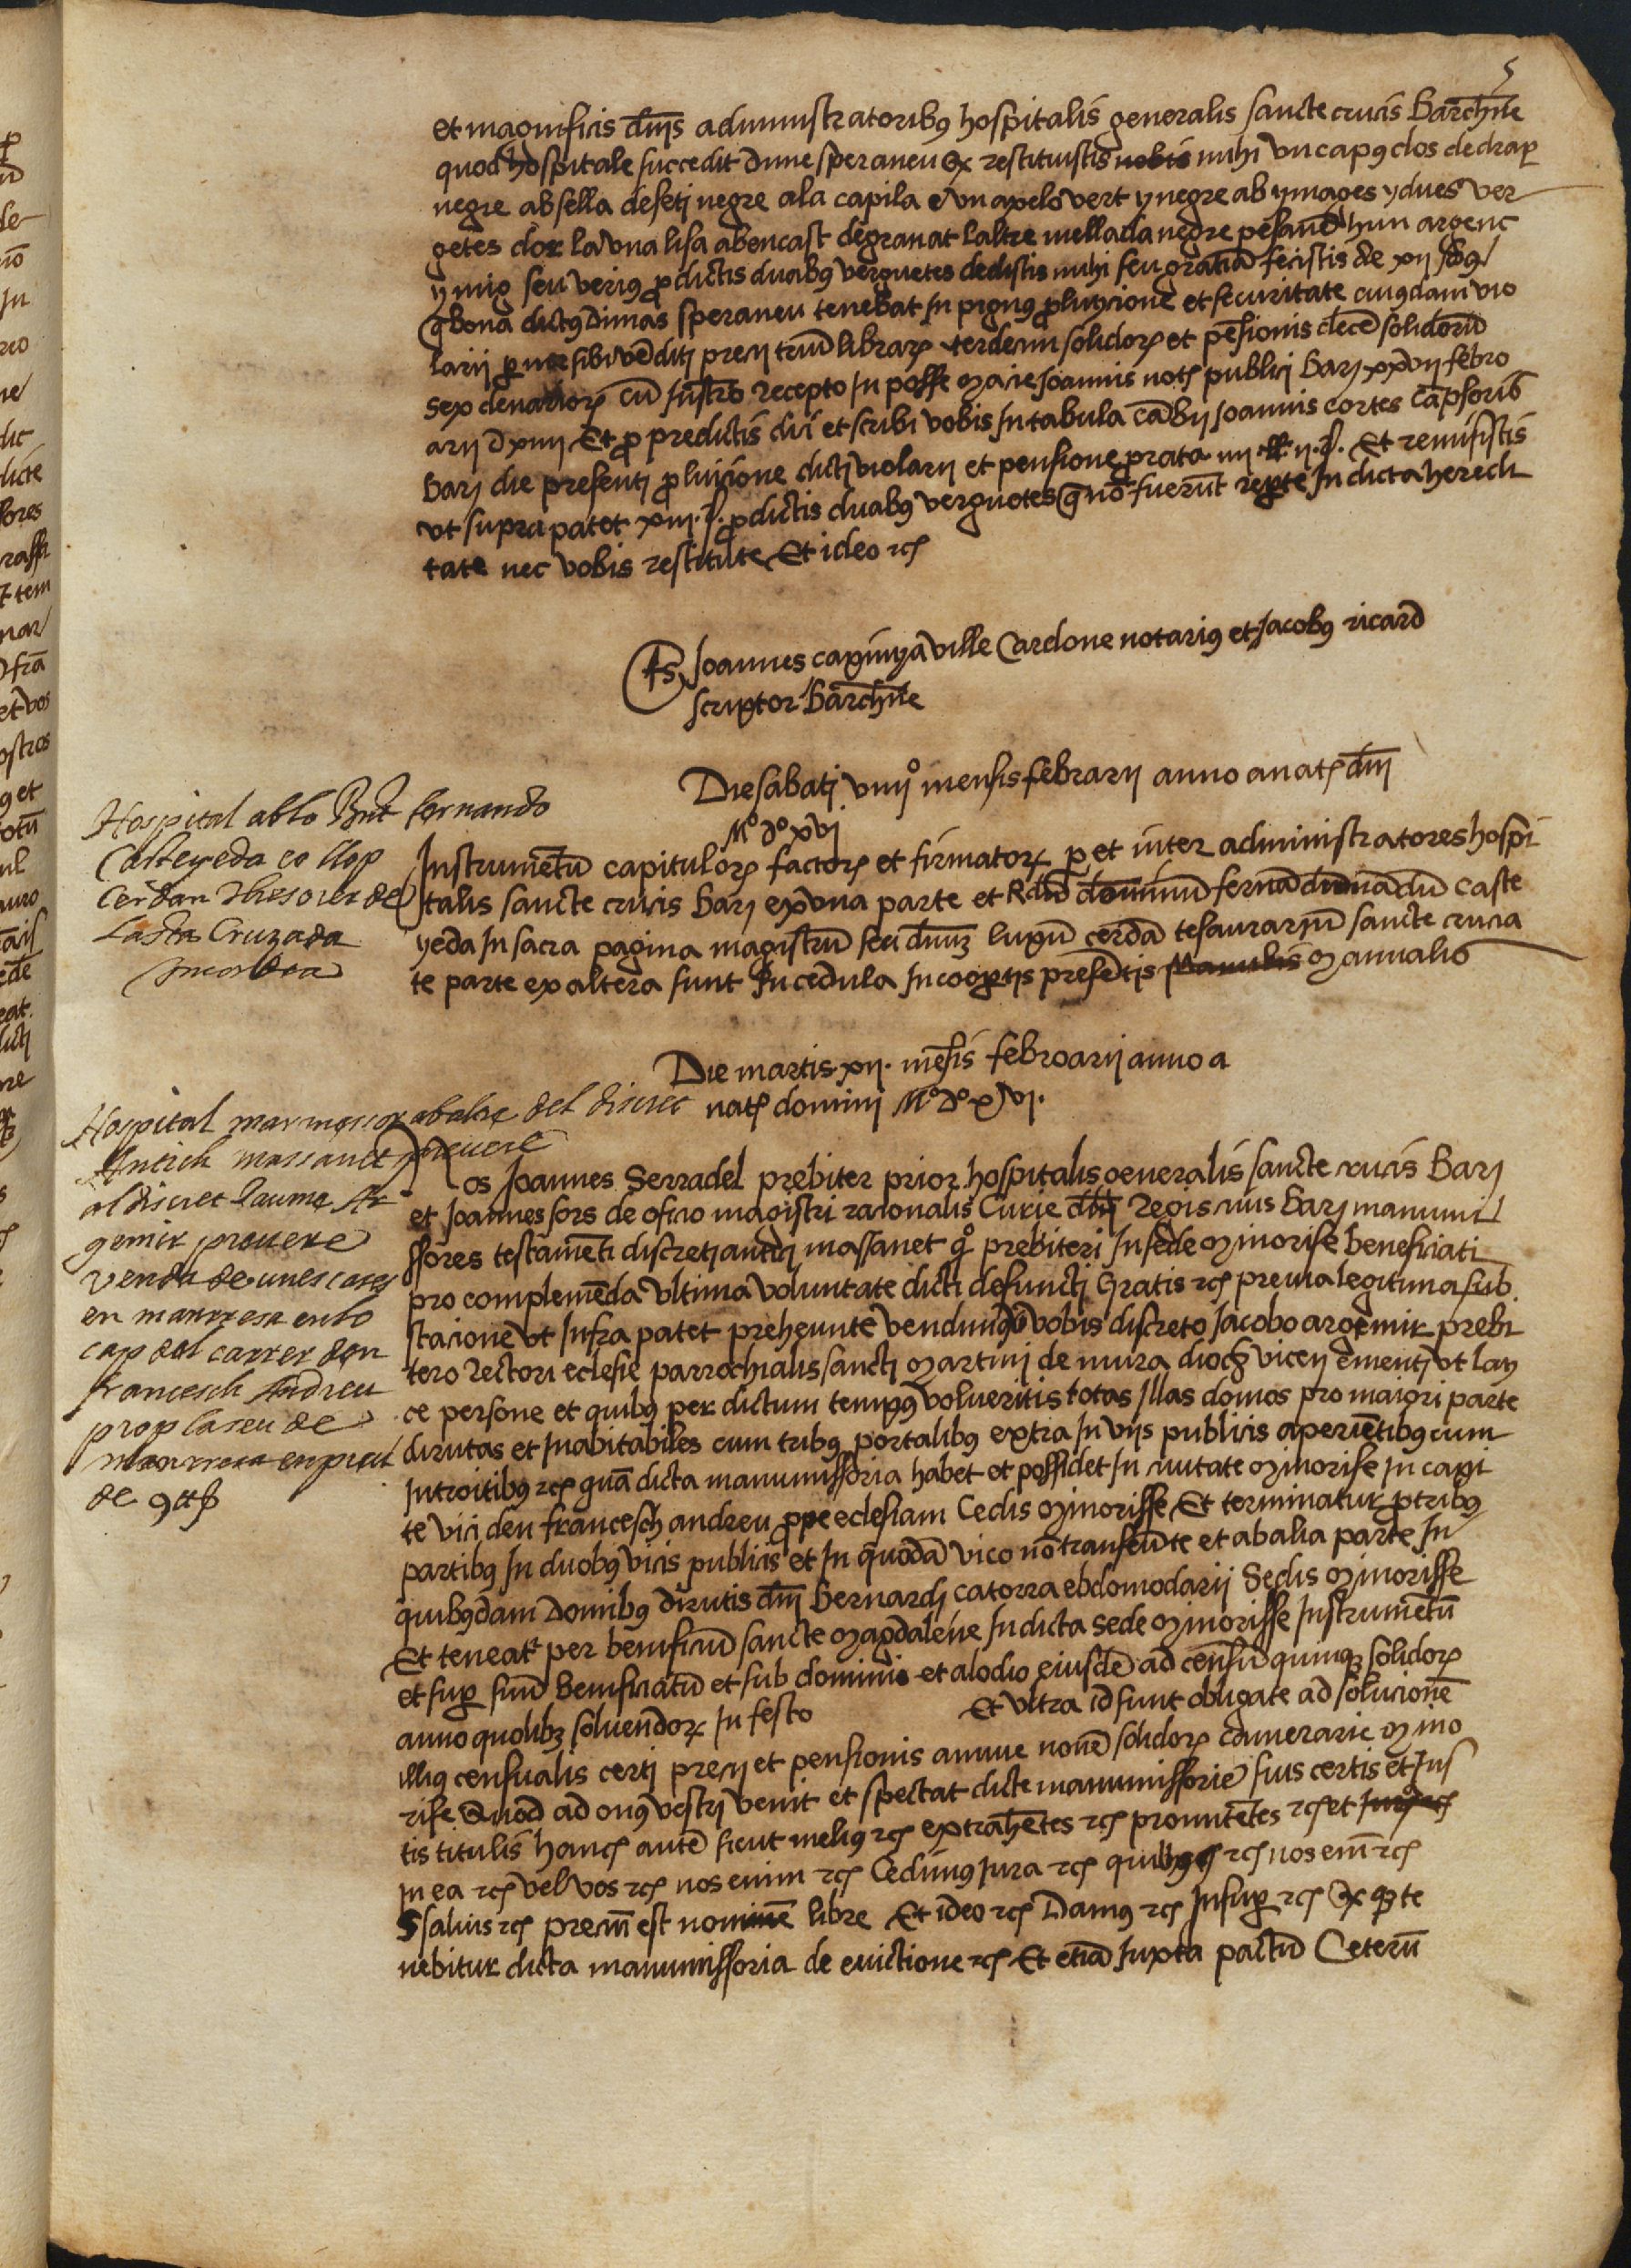 5
et magnificis dnis administratoribus hospitalis generalis sancte crucis Barchne
quod hospitale succedit dime speraneu ex restituistis nobis mihi un capus clos de drap
negre ab sella de seti negre ala capila e un apelo vert y negre ab ymages y dues ver
getes dor la una lisa ab encast de granat laltre mellada negre pesant hun argenc
y mig seu verius p dictis duabus verguetes dedistis mihi seu gratia fecistis de xii sbus
q bona dictus Dimas speraneu tenebat in pignus p luyicione et securitate cuiusdam vio
larii p me sibi venditi precii trium librarum terdecim solidorum et pensionis decem solidorum
sex denariorum cum Instro recepto in posse Macie Joannis not publici Barn xxvii febro
arii D xiiii Et p predictis dici et scribi vobis in tabula cambii Joannis cortes campsoris
Barn die presenti p luicione dicti violarii et pensione prata iiii ll ii s. Et remisistis
ut supra patet xiii s. p dictis duabus verguetes q no fuerunt repte in dicta heredi
tate nec vobis restitute Et ideo etc
Ts Joannes capinya ville Cardone notarius et Jacobus ricard
scriptor Barchne
Die sabati viiii mensis febrarii anno a nat dni
Mº dº xvi
Hospital ab lo Rnt fernando
Casteyeda e o llop
Cerdan thesorer de
la Sta Cruzada
Instrumentu capitulorum factorum et firmatorum p et inter administratores hospi
talis sancte crucis Barn ex una parte et Rdu dominum fernandu caste
yeda in sacra pagina magistru seu dnm lupu cerda tesaurarium sancte crucia
te parte ex altera sunt in cedula in coopertis presentis Manulis Manualis
Die martis xii mensis febroarii anno a
nat domini Mº dº xvi.
Hospital marmessor abalre del discret
Antich massanet prevere
al discret Jaume Ar
gemir prevere
venda de unes cases
en manresa en lo
cap del carrer den
francesch Andreu
prop la seu de
manresa en preu
de
Nos Joannes Serradel prebiter prior hospitalis generalis sancte crucis Barn
et Joannes sors de oficio magistri racionalis Curie dni Regis civis Barn manumi
ssores testamenti discreti antich massanet qº prebiteri in sede Minorise beneficiati
pro complemeda ultima voluntate dicti defuncti Gratis etc previa legitima sub
stacione ut infra patet preheunte vendimus vobis discreto Jacobo argemir prebi
tero rectori eclesie parrochialis sancti Martini de mura dioc vicen ementi ut lay
ce persone et quibus per dictum tempus volueritis totas illas domos pro maiori parte
dirutas et inabitabiles cum tribus portalibus extra in viis publicis aperientibus cum
introitibus etc quam dicta manumissoria habet et possidet in civitate Minorise in capi
te vici den francesch andreu ppe eclesiam Cedis Minorisse Et terminatur p tribus
partibus in duobus vicis publicis et in quodam vico no transeunte et ab alia parte in
quibusdam Domibus dirutis dni Bernardi catorra ebdomodarii Sedis Minorisse
Et teneatr per benificiu sancte Magdalene in dicta sede Minorisse Instrumentu
et sup suu benificiatu et sub dominio et alodio eiusde ad censu quinque solidorum
anno quolibet solvendorum in festo Et ultra id sunt obligate ad solucione
illius censualis certi precii et pensionis annue novem solidorum camerarie Mino
rise Quod ad onus vestri venit et spectat dicte manumissorie suis certis et ius
tis titulis Hanc autem sicut melius etc extrahentes etc promitentes etc et
in ea etc vel vos etc nos enim etc Cedimus Jura etc quibus etc nos em etc
Ssalvis etc precium est novem libre Et ideo etc Damus etc Insup etc Ex q te
nebitur dicta manumissoria de evictione etc Et etia iuxta pactu Ceteru